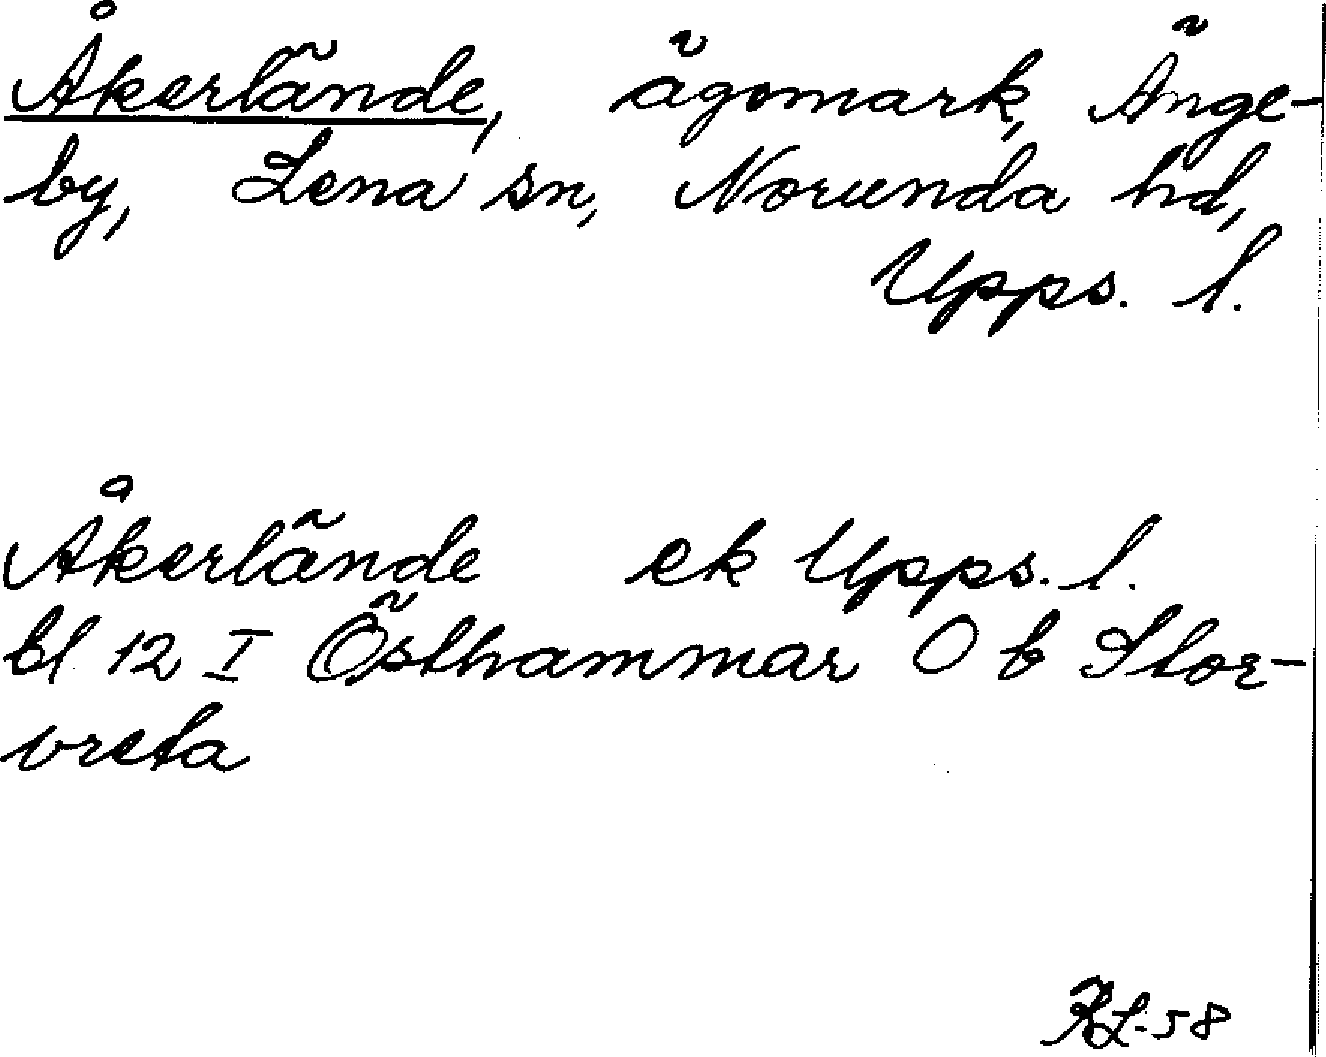 Åkerlände, ägomark, Änge-
by, Lena sn, Norunda hd,
Upps. l.
Åkerlände ek Upps. l.
bl 12 I Östhammar O b Stor-
vreta
RL-58